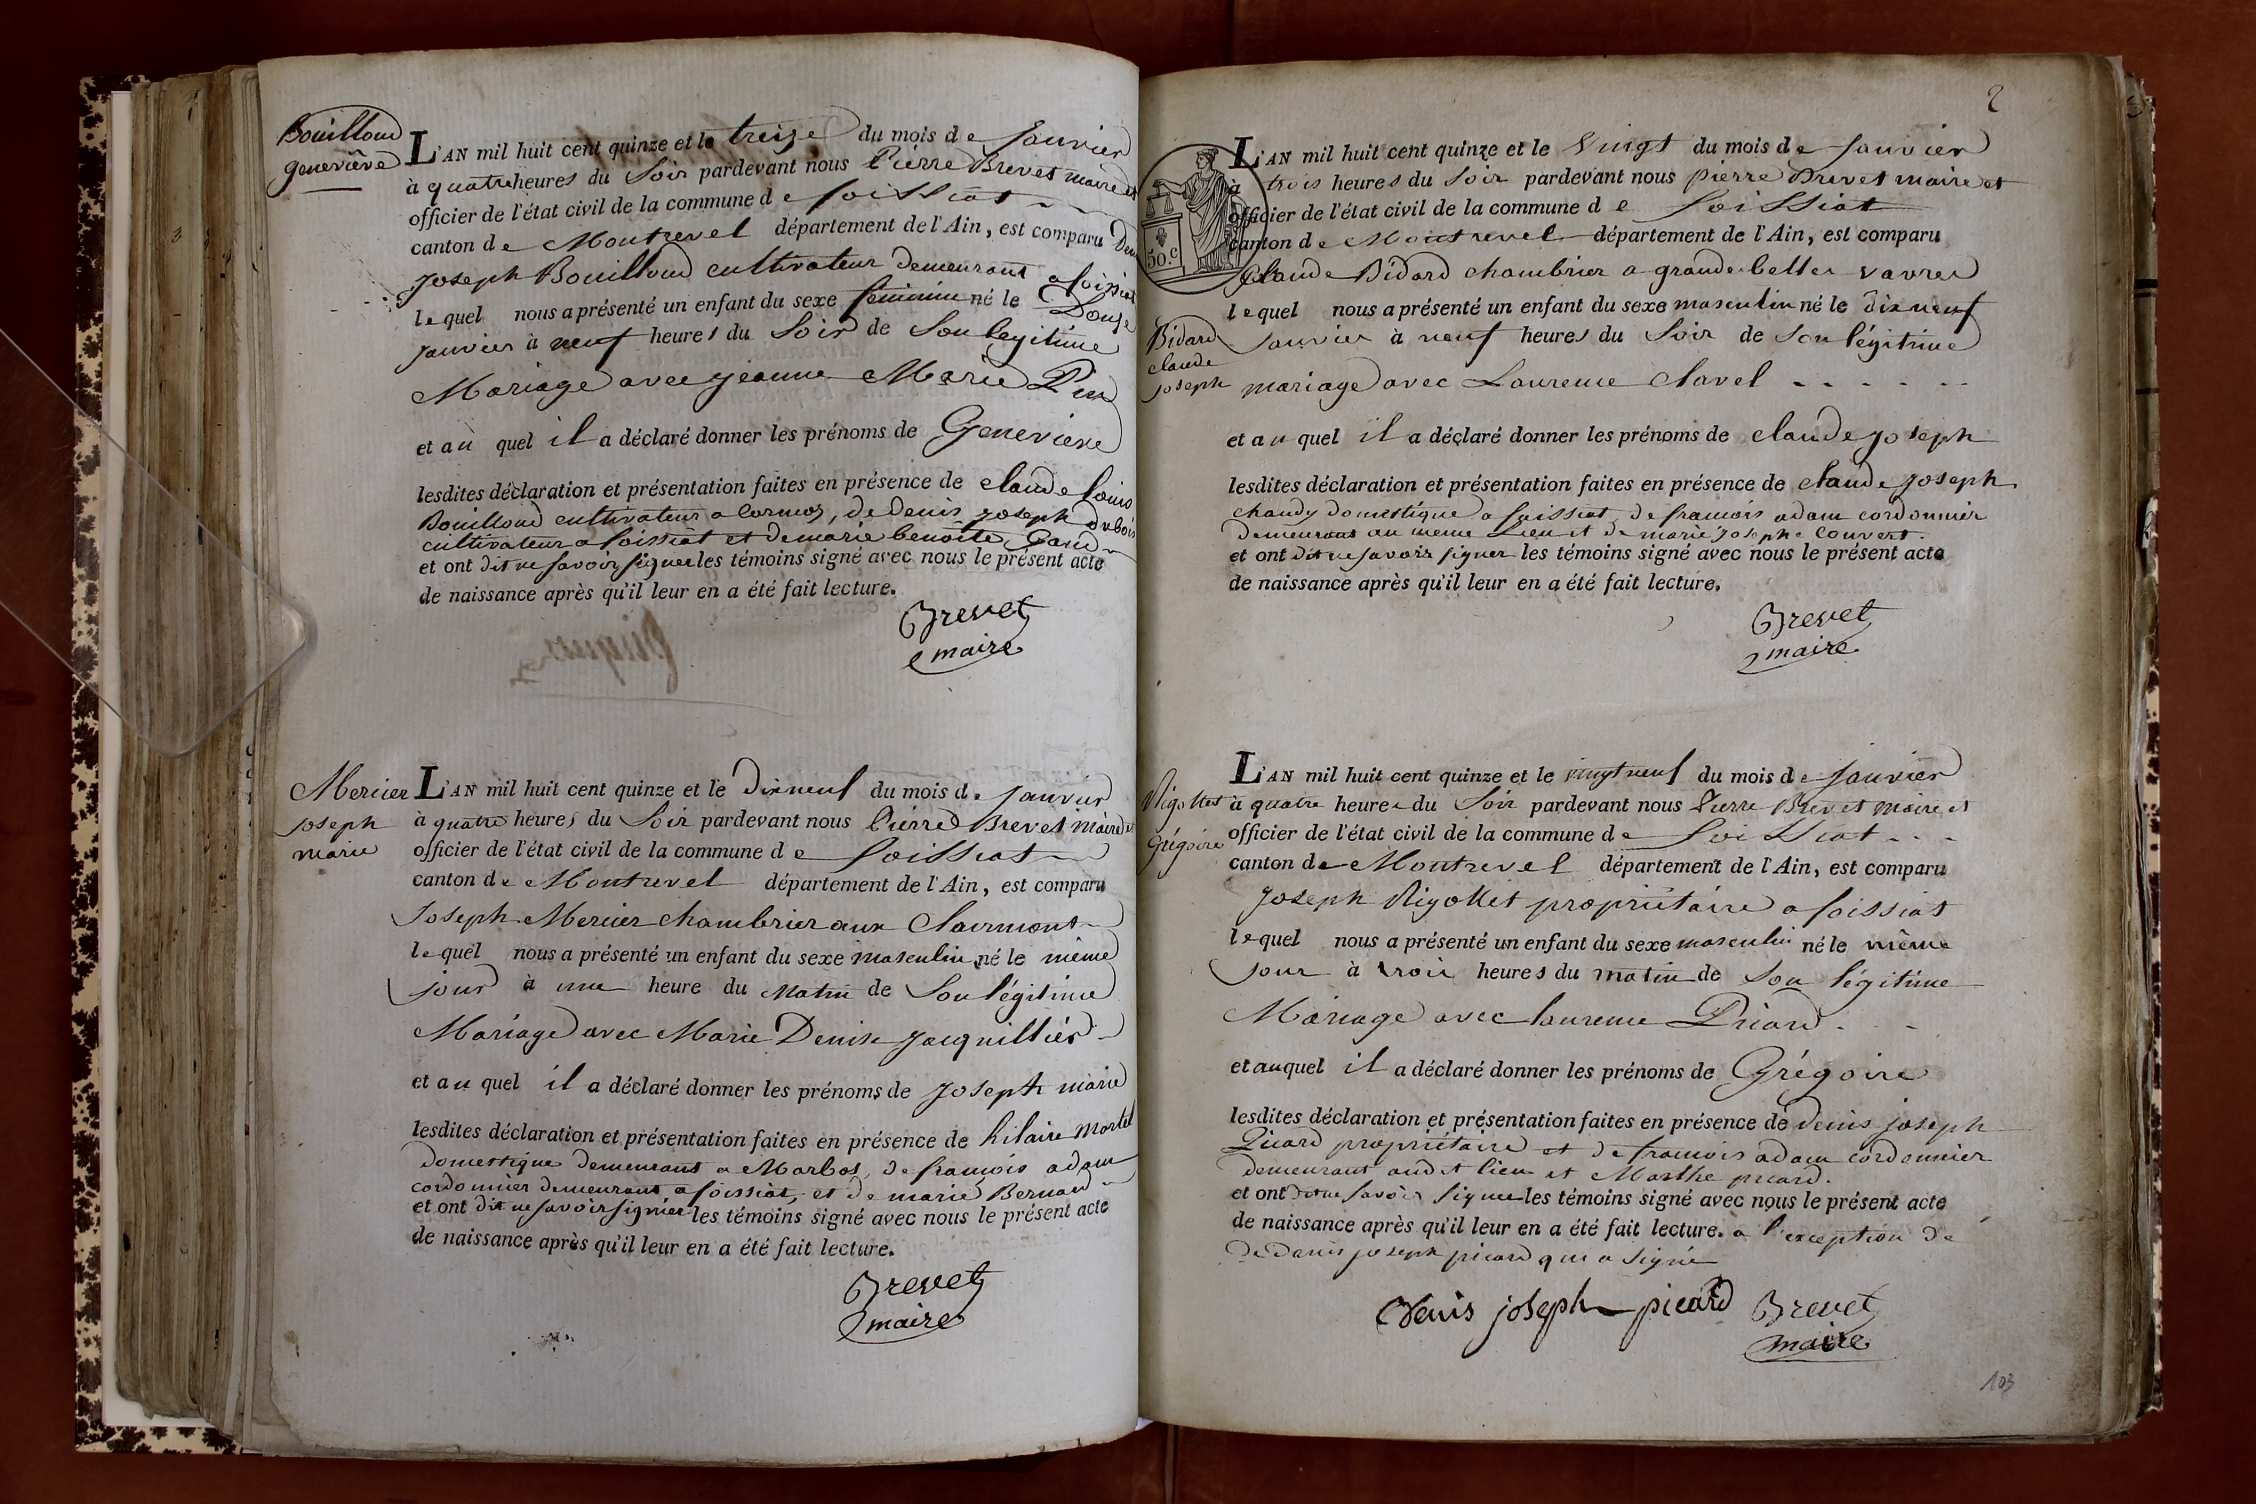 Bouilloud
Geneviève
L'AN mil huit cent quinze et le treize du mois de Janvier
à quatre heures du Soir pardevant nous Pierre Brevet maire et
officier de l'état civil de la commune de foissiat
canton de Montrevel département de l'Ain, est comparu
Joseph Bouilloud cultivateur demeurant a foissiat
lequel nous a présenté un enfant du sexe féminin né le Douze
Janvier à neuf heures du Soir de Son légitime
Mariage avec jeanne Marie
et au quel il a déclaré donner les prénoms de Geneviève
lesdites déclaration et présentation faites en présence de claude louis
Bouilloud cultivateur a Cormoz, de denis joseph dubois
cultivateur a foissiat et de marie benoite
et ont dit ne savoir signer les témoins signé avec nous le présent acte
de naissance après qu'il leur en a été fait lecture.
Brevet
maire
Mercier
joseph
marie
L'AN mil huit cent quinze et le Dixneuf du mois de janvier
à quatre heures du Soir pardevant nous Pierre Brevet Maire et
officier de l'état civil de la commune de foissiat
canton de Montrevel département de l'Ain, est comparu
Joseph Mercier chambrier aux Clairmont
lequel nous a présenté un enfant du sexe masculin né le même
jour à une heure du matin de Son légitime
Mariage avec Marie Denise jacquillier
et au quel il a déclaré donner les prénoms de joseph marie
lesdites déclaration et présentation faites en présence de hilaire Martel
domestique demeurant a Marboz, de françois adam
cordonnier demeurant a foissiat, et de marie Bernard
et ont dit ne savoir signer les témoins signé avec nous le présent acte
de naissance après qu'il leur en a été fait lecture.
Brevet
maire
2
L'AN mil huit cent quinze et le Vingt du mois de Janvier
à trois heures du Soir pardevant nous pierre Brevet maire et
officier de l'état civil de la commune de foissiat
canton de Montrevel département de l'Ain, est comparu
50.c
Claude Bidard chambrier a grandes belles vavres
lequel nous a présenté un enfant du sexe masculin né le dixneuf
Bidard
claude
joseph
Janvier à neuf heures du Soir de Son légitime
mariage avec Laurence Clavel - - - - - -
et au quel il a déclaré donner les prénoms de claude joseph
lesdites déclaration et présentation faites en présence de claude joseph
chaudy domestique a foissiat, de francois adam cordonnier
demeurant au meme Lieu et de marie josephe Convert.
et ont dit ne savoir signer les témoins signé avec nous le présent acte
de naissance après qu'il leur en a été fait lecture.
Brevet
maire
Rigollet
Grégoire
L'AN mil huit cent quinze et le vingt neuf du mois de Janvier
à quatre heures du Soir pardevant nous Pierre Brevet Maire et
officier de l'état civil de la commune de foissiat - -
canton de Montrevel département de l'Ain, est comparu
Joseph Rigollet propriétaire a foissiat
lequel nous a présenté un enfant du sexe masculin né le même
jour à trois heures du matin de Son légitime
Mariage avec laurence Picard - -
et auquel il a déclaré donner les prénoms de Grégoire
lesdites déclaration et présentation faites en présence de denis joseph
Picard propriétaire et de francois adam cordonnier
demeurant audit lieu et Marthe picard.
et ont dit ne savoir signer les témoins signé avec nous le présent acte
de naissance après qu'il leur en a été fait lecture. a l'exception de
de denis joseph picard qui a signé
denis joseph picard Brevet
maire
103